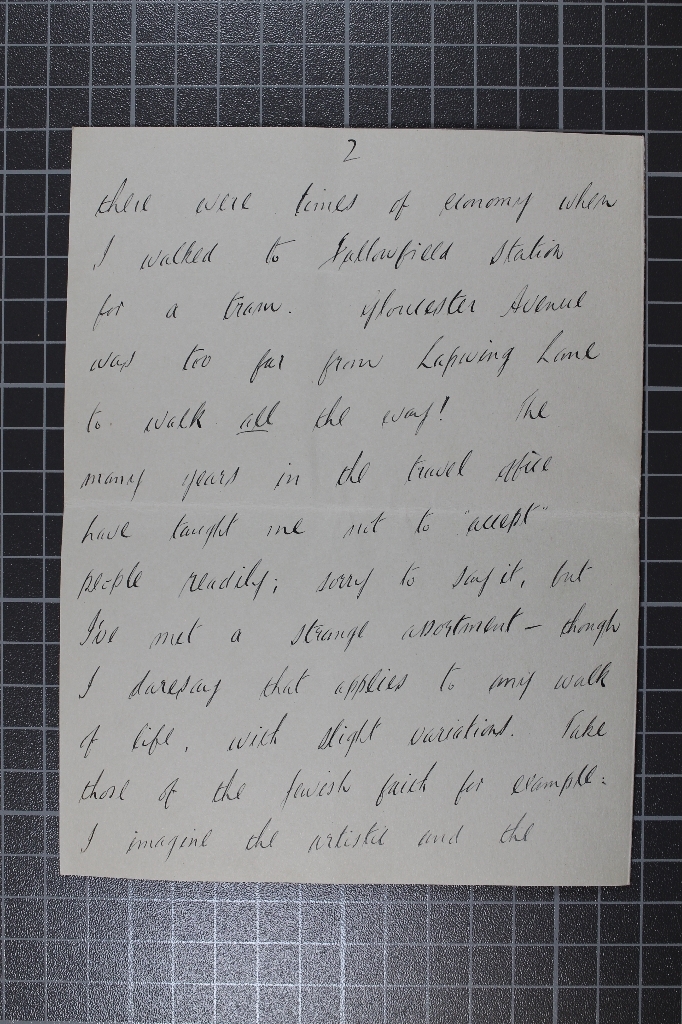 2
there were times of economy when
I walked to Fallowfield Station
for a tram. Gloucester Avenue
was too far from Lapwing Lane
to walk all the way! The
many years in the travel office
have taught me not to "accept"
people readily; sorry to say it, but
I've met a strange assortment - though
I daresay that applies to any walk
of life, with slight variations. Take
those of the Jewish faith for example:
I imagine the artistic and the